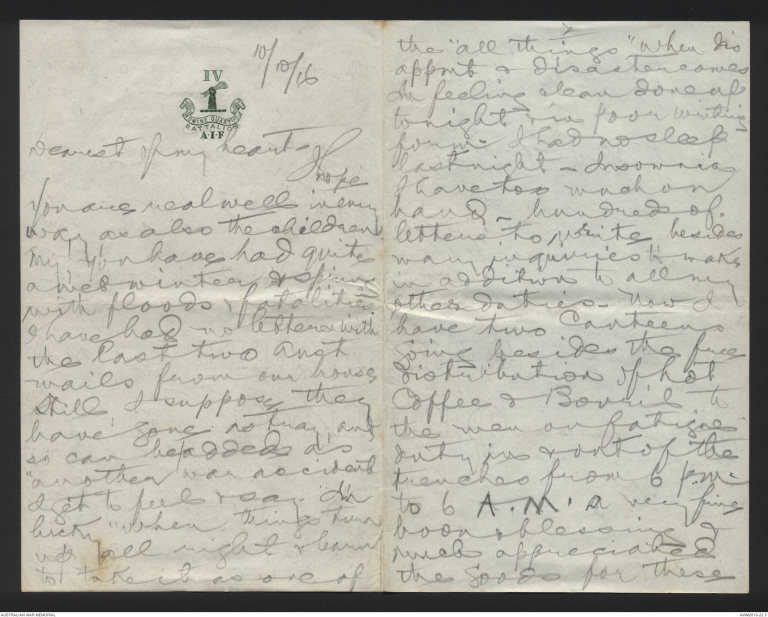 10/10/16
IV
BATTALION
A.I.F
Dearest of my heart -
I hope
you are real well in every
way as also the children
My you have had quite
a wet winter & spring
with floods & fatalities
I have had no letters with
the last two Aust
mails from our house
Still I suppose they
have gone astray and
so can be added as
"another war accident"
I get to feel & say "I'm
lucky" when things turn
up all right & learn
to take it as one of
the "all things" when dis
appmt & disaster comes
Am feeling clean done up
tonight & in poor writing
form. I had no sleep
last night - Insomnia
I have too much on
hand - hundred of
letters to write besides
many inquiries to make
in addition to all my
other duties - Now I
have two Canteens
going besides the free
distribution of hot
Coffee & Bovril to
the men on fatigue
duty in & out of the
trenches from 6 p.m.
to 6 A.M. a very fine
boon & blessing &
much appreciated
the goods for these
AUSTRALIAN WAR MEMORIAL
AWM2019.22.5